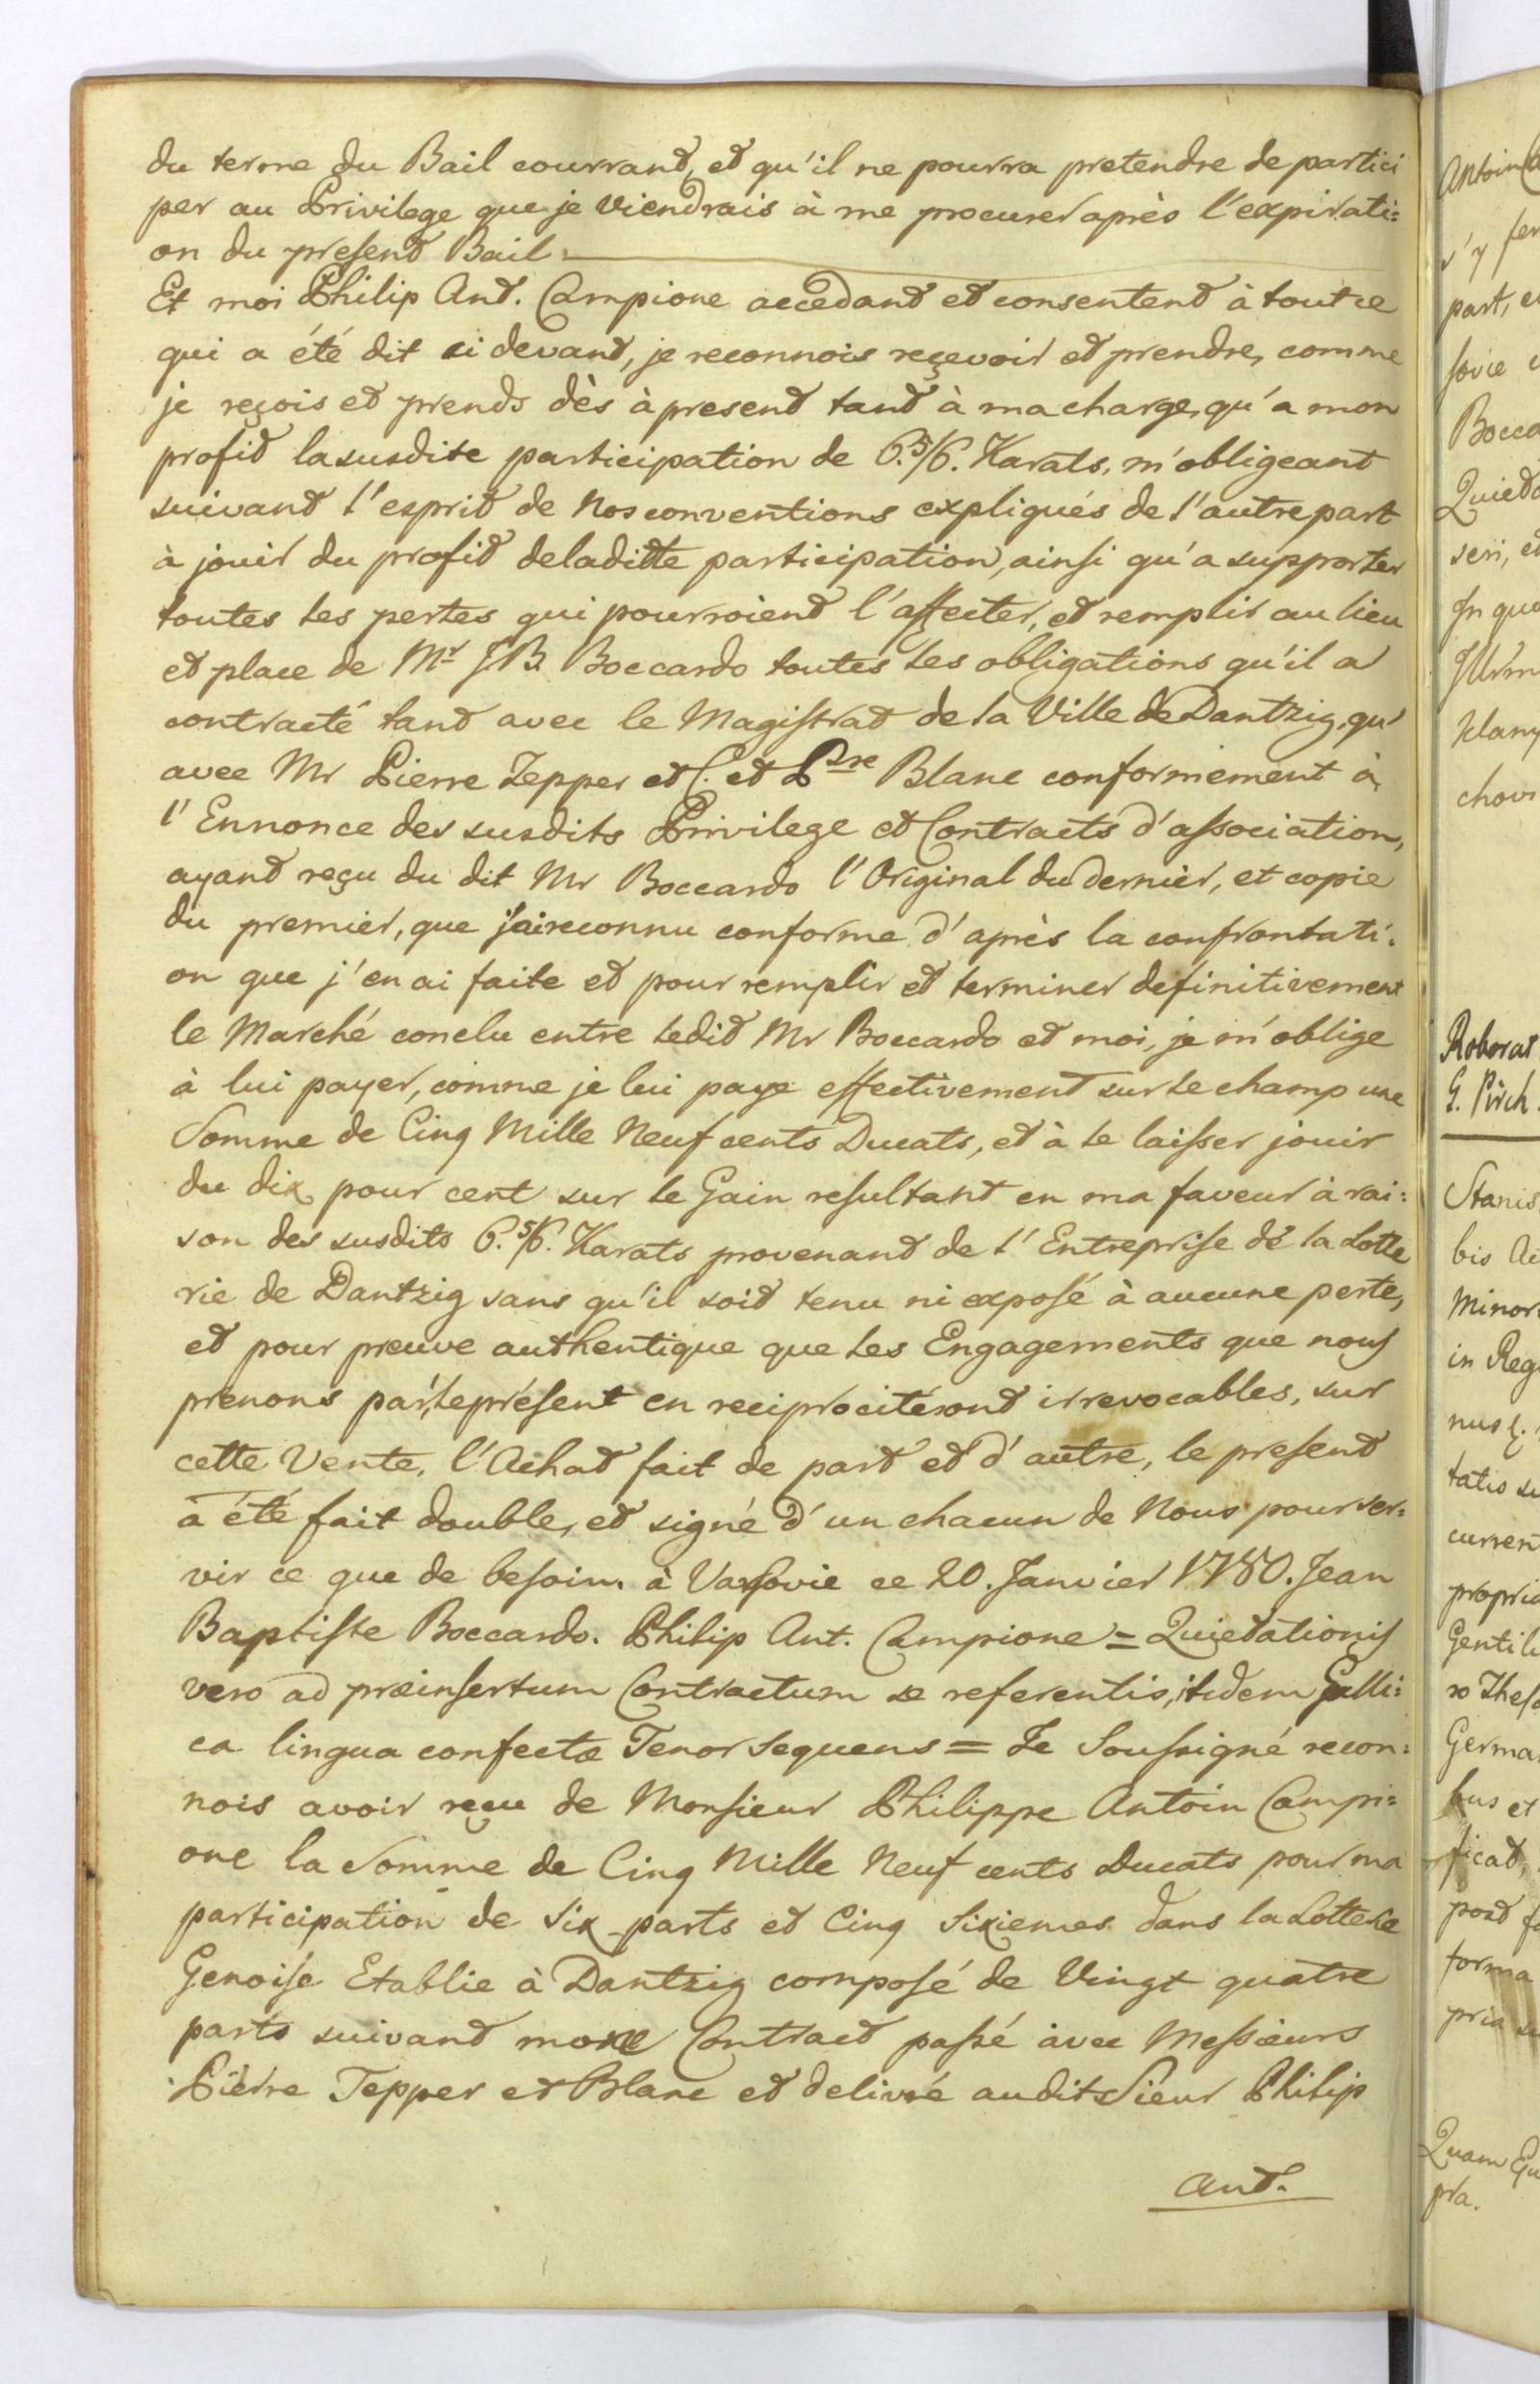 du terme du Bail courrant, et qu'il ne pourra pretendre de partici
per au Privilege que je viendrais à me procurer après l'expirati=
on du present Bail.
Et moi Philip Ant. Campione accedant et consentent à tout ce
qui a été dit ci devant, je reconnois reçevoir et prendre, comme
je reçois et prends dès à present tant à ma charge, qu'a mon
profit la susdite participation de 6.5/6. Karats, m'obligeant
suivant l'esprit de nos conventions expliqués de l'autre part
à jouir du profit de laditte participation, ainsi qu'a supporter
toutes les pertes qui pourroient l'affecter, et remplir au lieu
et place de Mr J.B. Boccardo toutes les obligations qu'il a
contracté tant avec le Magistrat de la Ville de Dantzig, qu'
avec Mr Pierre Tepper et C. et Pre Blanc conformement à
l'Ennonce des susdits Privilege et Contracts d'association,
ayant reçu du dit Mr Boccardo l'Original du dernier, et copie
du premier, que j'ai reconnu conforme d'après la confrontati=
on que j'en ai faite et pour remplir et terminer definitivement
le Marché conclu entre ledit Mr Boccardo et moi, je m'oblige
à lui payer, comme je lui paye effectivement sur le champ une
Somme de Cinq Mille Neuf cents Ducats, et à le laisser jouir
du dix pour cent sur le Gain resultant en ma faveur à rai=
son des susdits 6.5/6. Karats provenant de l'Entreprise de la Lotte
rie de Dantzig sans qu'il soit tenu ni exposé à aucune perte,
et pour preuve authentique que les Engagements que nous
prenons par le présent en reciprocité sont irrevocables, sur
cette Vente, l'Achat fait de part et d'autre, le present
à été fait double, et signé d'un chacun de Nous pour ser=
vir ce que de besoin. à Varsovie ce 20. Janvier 1780. Jean
Baptiste Boccardo. Philip Ant. Campione = Quietationis
vero ad præinsertum Contractum se referentis, itidem Galli=
ca lingua confectæ Tenor sequens = Je Soussigné recon=
nois avoir reçu de Monsieur Philippe Antoin Campi=
one la Somme de Cinq Mille Neuf cents Ducats pour ma
participation de Six parts et Cinq Sixiemes dans la
Genoise Etablie à Dantzig composé de Vingt quatre
parts suivant Contract passé avec Messieurs
Pierre Tepper et Blanc et delivré audit Sieur Philip
Ant.
Antoin
s'y
part,
sovie
Bocca
Quieta
seri, et
In quo
chow
Roborat
G. Pirch.
Stanis
bis
Minor
in Reg
nus
tatis
curren
propria
Gentili
Germa
bus et
ficat,
forma
pria
Quam
pra.